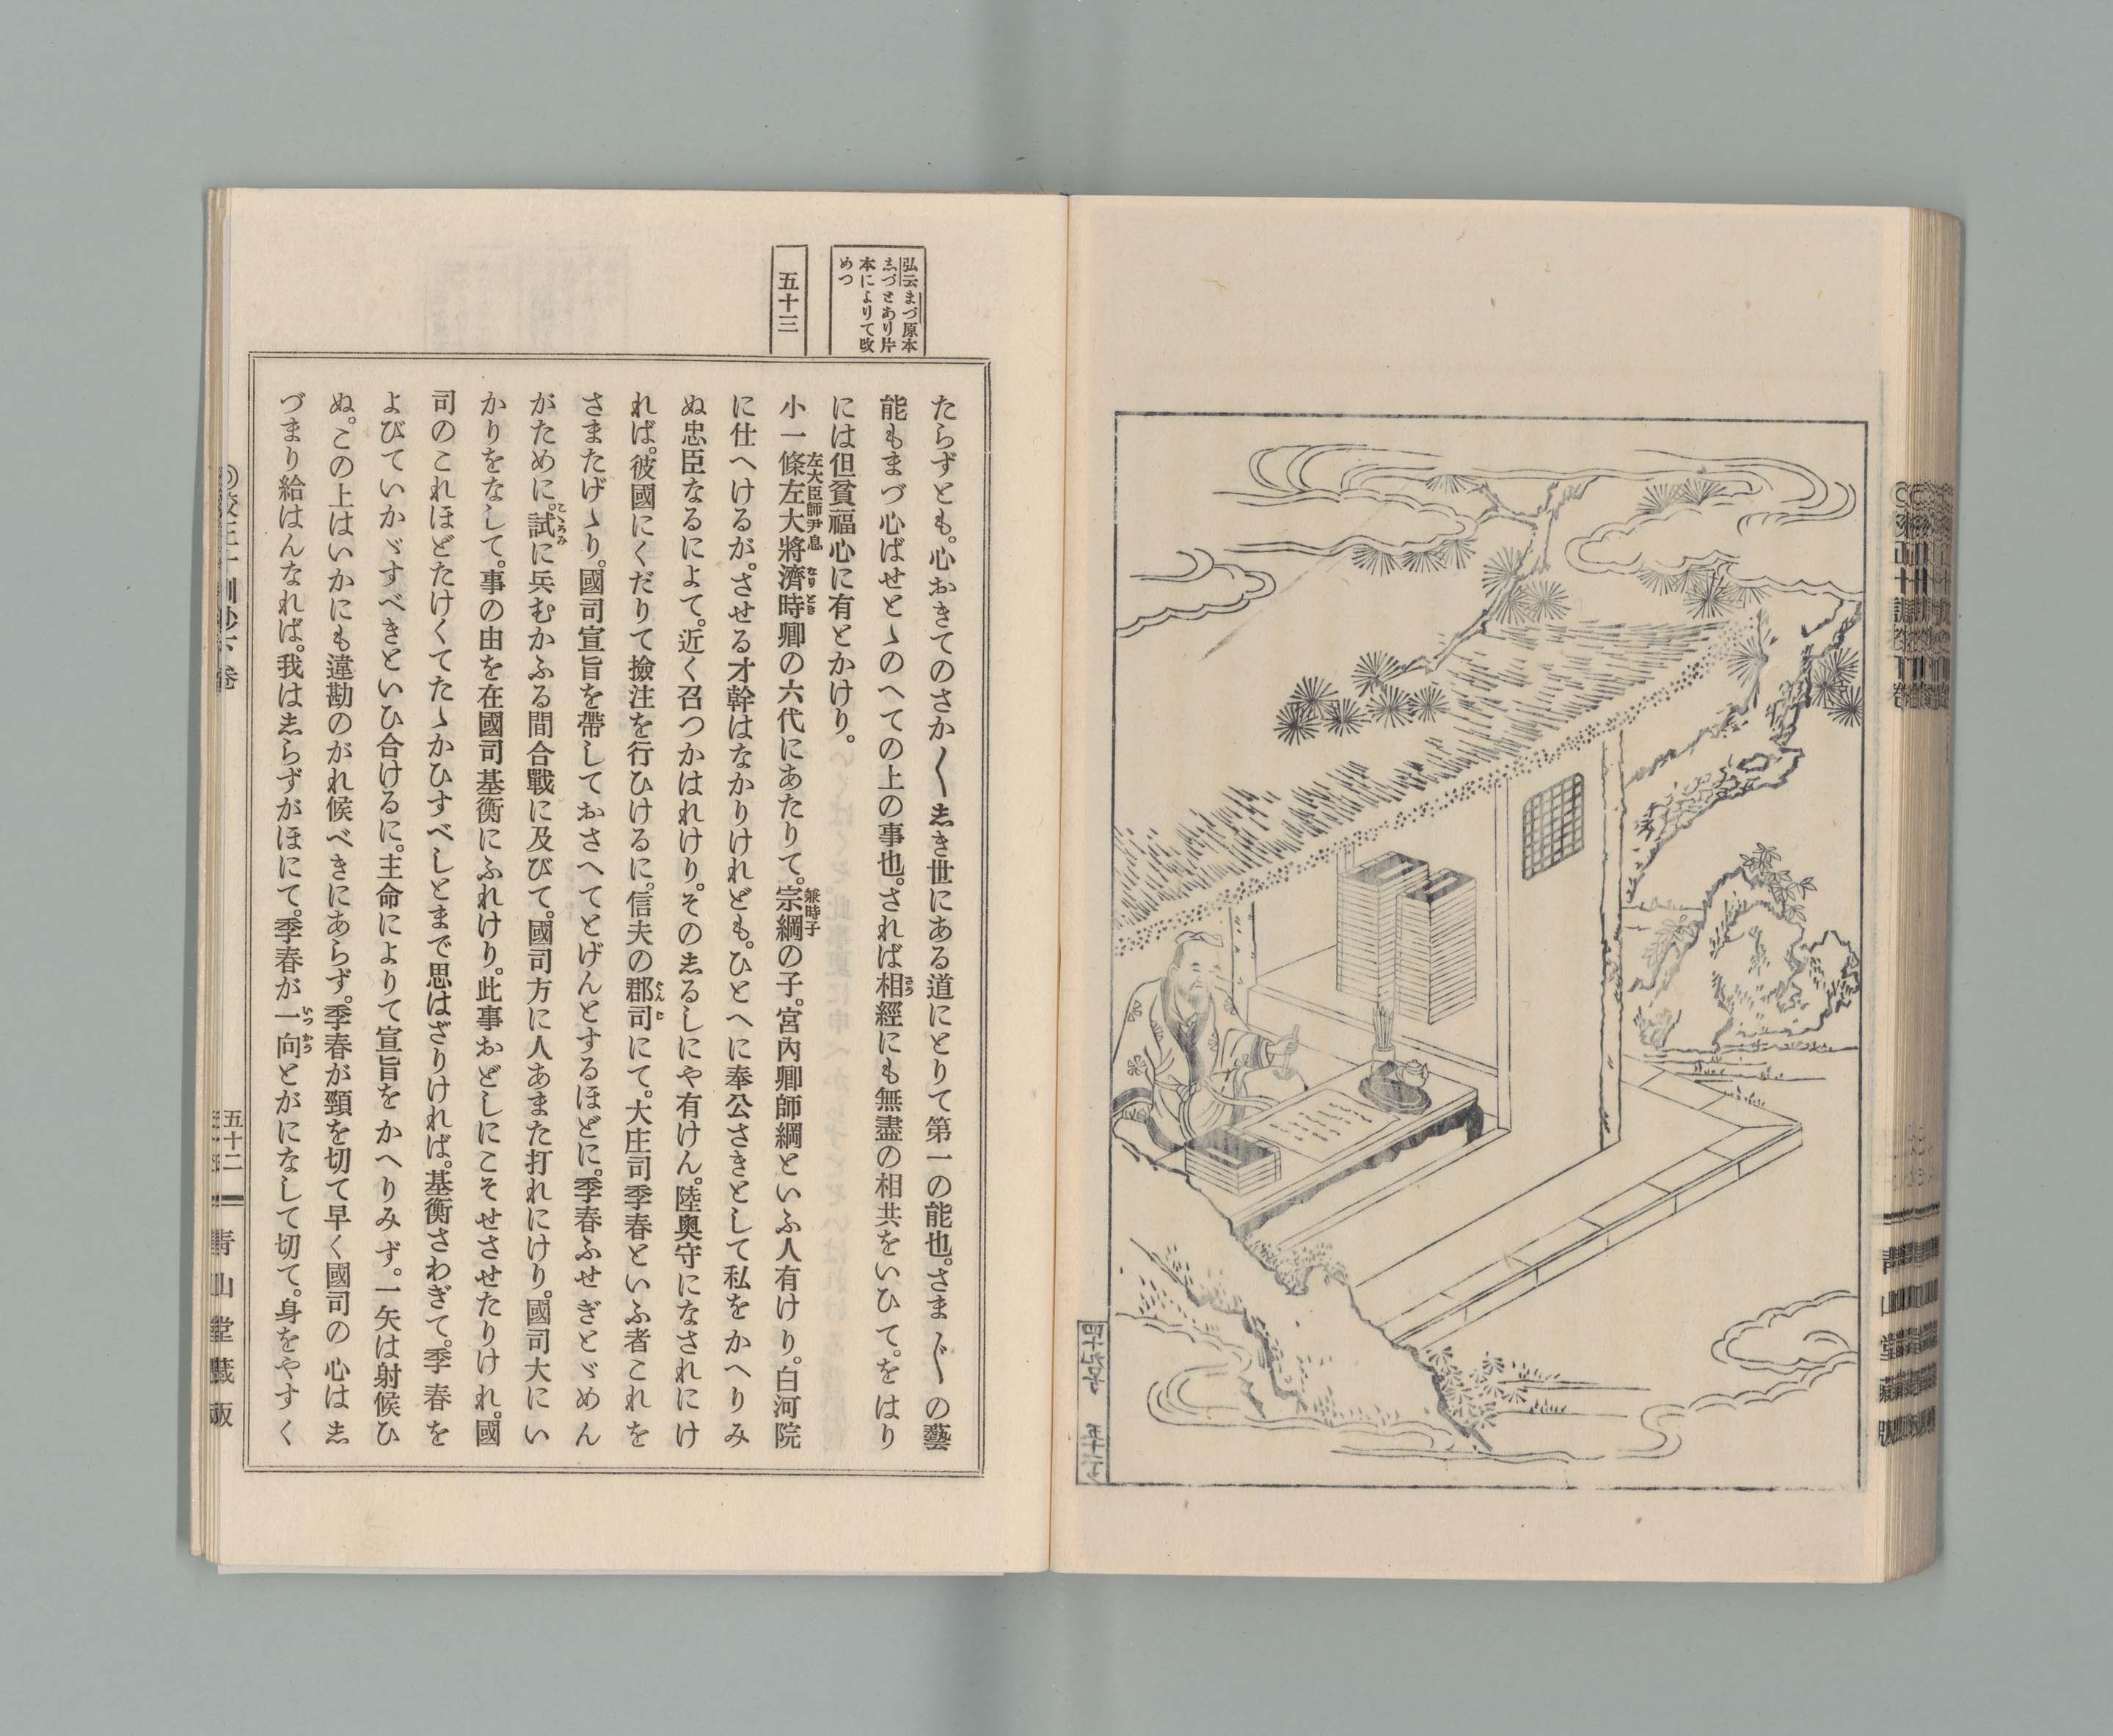 弘云まづ原本
志づとあり片
本によりて改
めつ
五十三
たらずとも。心おきてのさか〱志き世にある道にとりて第一の能也。さま〲の藝
能もまづ心ばせとゝのへての上の事也。されば相經にも無盡の相共をいひて。をはり
には但貧福心に有とかけり。
小一條左大將濟時卿の六代にあたりて。宗綱の子。宮內卿師綱といふ人有けり。白河院
左大臣師尹息
なりとき
兼時子
に仕へけるが。させる才幹はなかりけれども。ひとへに奉公さきとして私をかへりみ
ぬ忠臣なるによて。近く召つかはれけり。その志るしにや有けん。陸奧守になされにけ
れば。彼國にくだりて撿注を行ひけるに。信夫の郡司にて。大庄司季春といふ者これを
ぐんじ
さまたげゝり。國司宣旨を帶しておさへてとげんとするほどに。季春ふせぎとゞめん
がために。試に兵むかふる間合戰に及びて。國司方に人あまた打れにけり。國司大にい
こゝろみ
かりをなして。事の由を在國司基衡にふれけり。此事おどしにこそせさせたりけれ。國
司のこれほどたけくてたゝかひすべしとまで思はざりければ。基衡さわぎて。季春を
よびていかゞすべきといひ合けるに。主命によりて宣旨をかへりみず。一矢は射候ひ
ぬ。この上はいかにも違勘のがれ候べきにあらず。季春が頸を切て早く國司の心は志
づまり給はんなれば。我は志らずがほにて。季春が一向とがになして切て。身をやすく
いつかう
五十二
靑山堂藏版